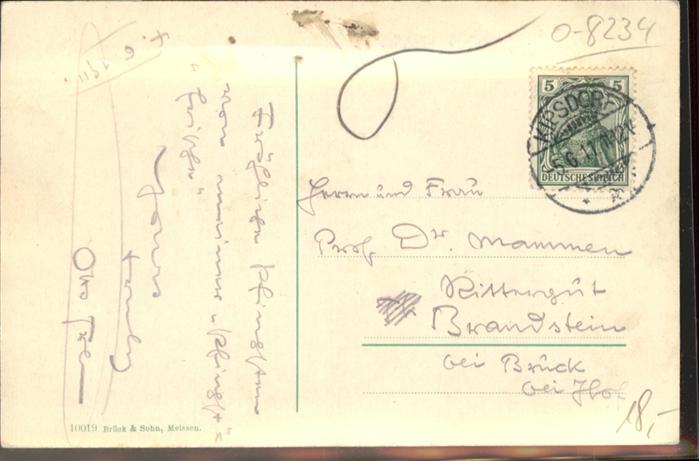 O-8234
5 5
KIPSDORF
5.6.11
DEUTSCHES REICH
Herrn und Frau
Prof. Dr. Mammen
Rittergut
Brandstein
bei Brück
bei Hof
Fröhliche Pfingsten
von meiner „Pfingst=
Yours
Otto
18,-
10019 Brück & Sohn, Meissen.